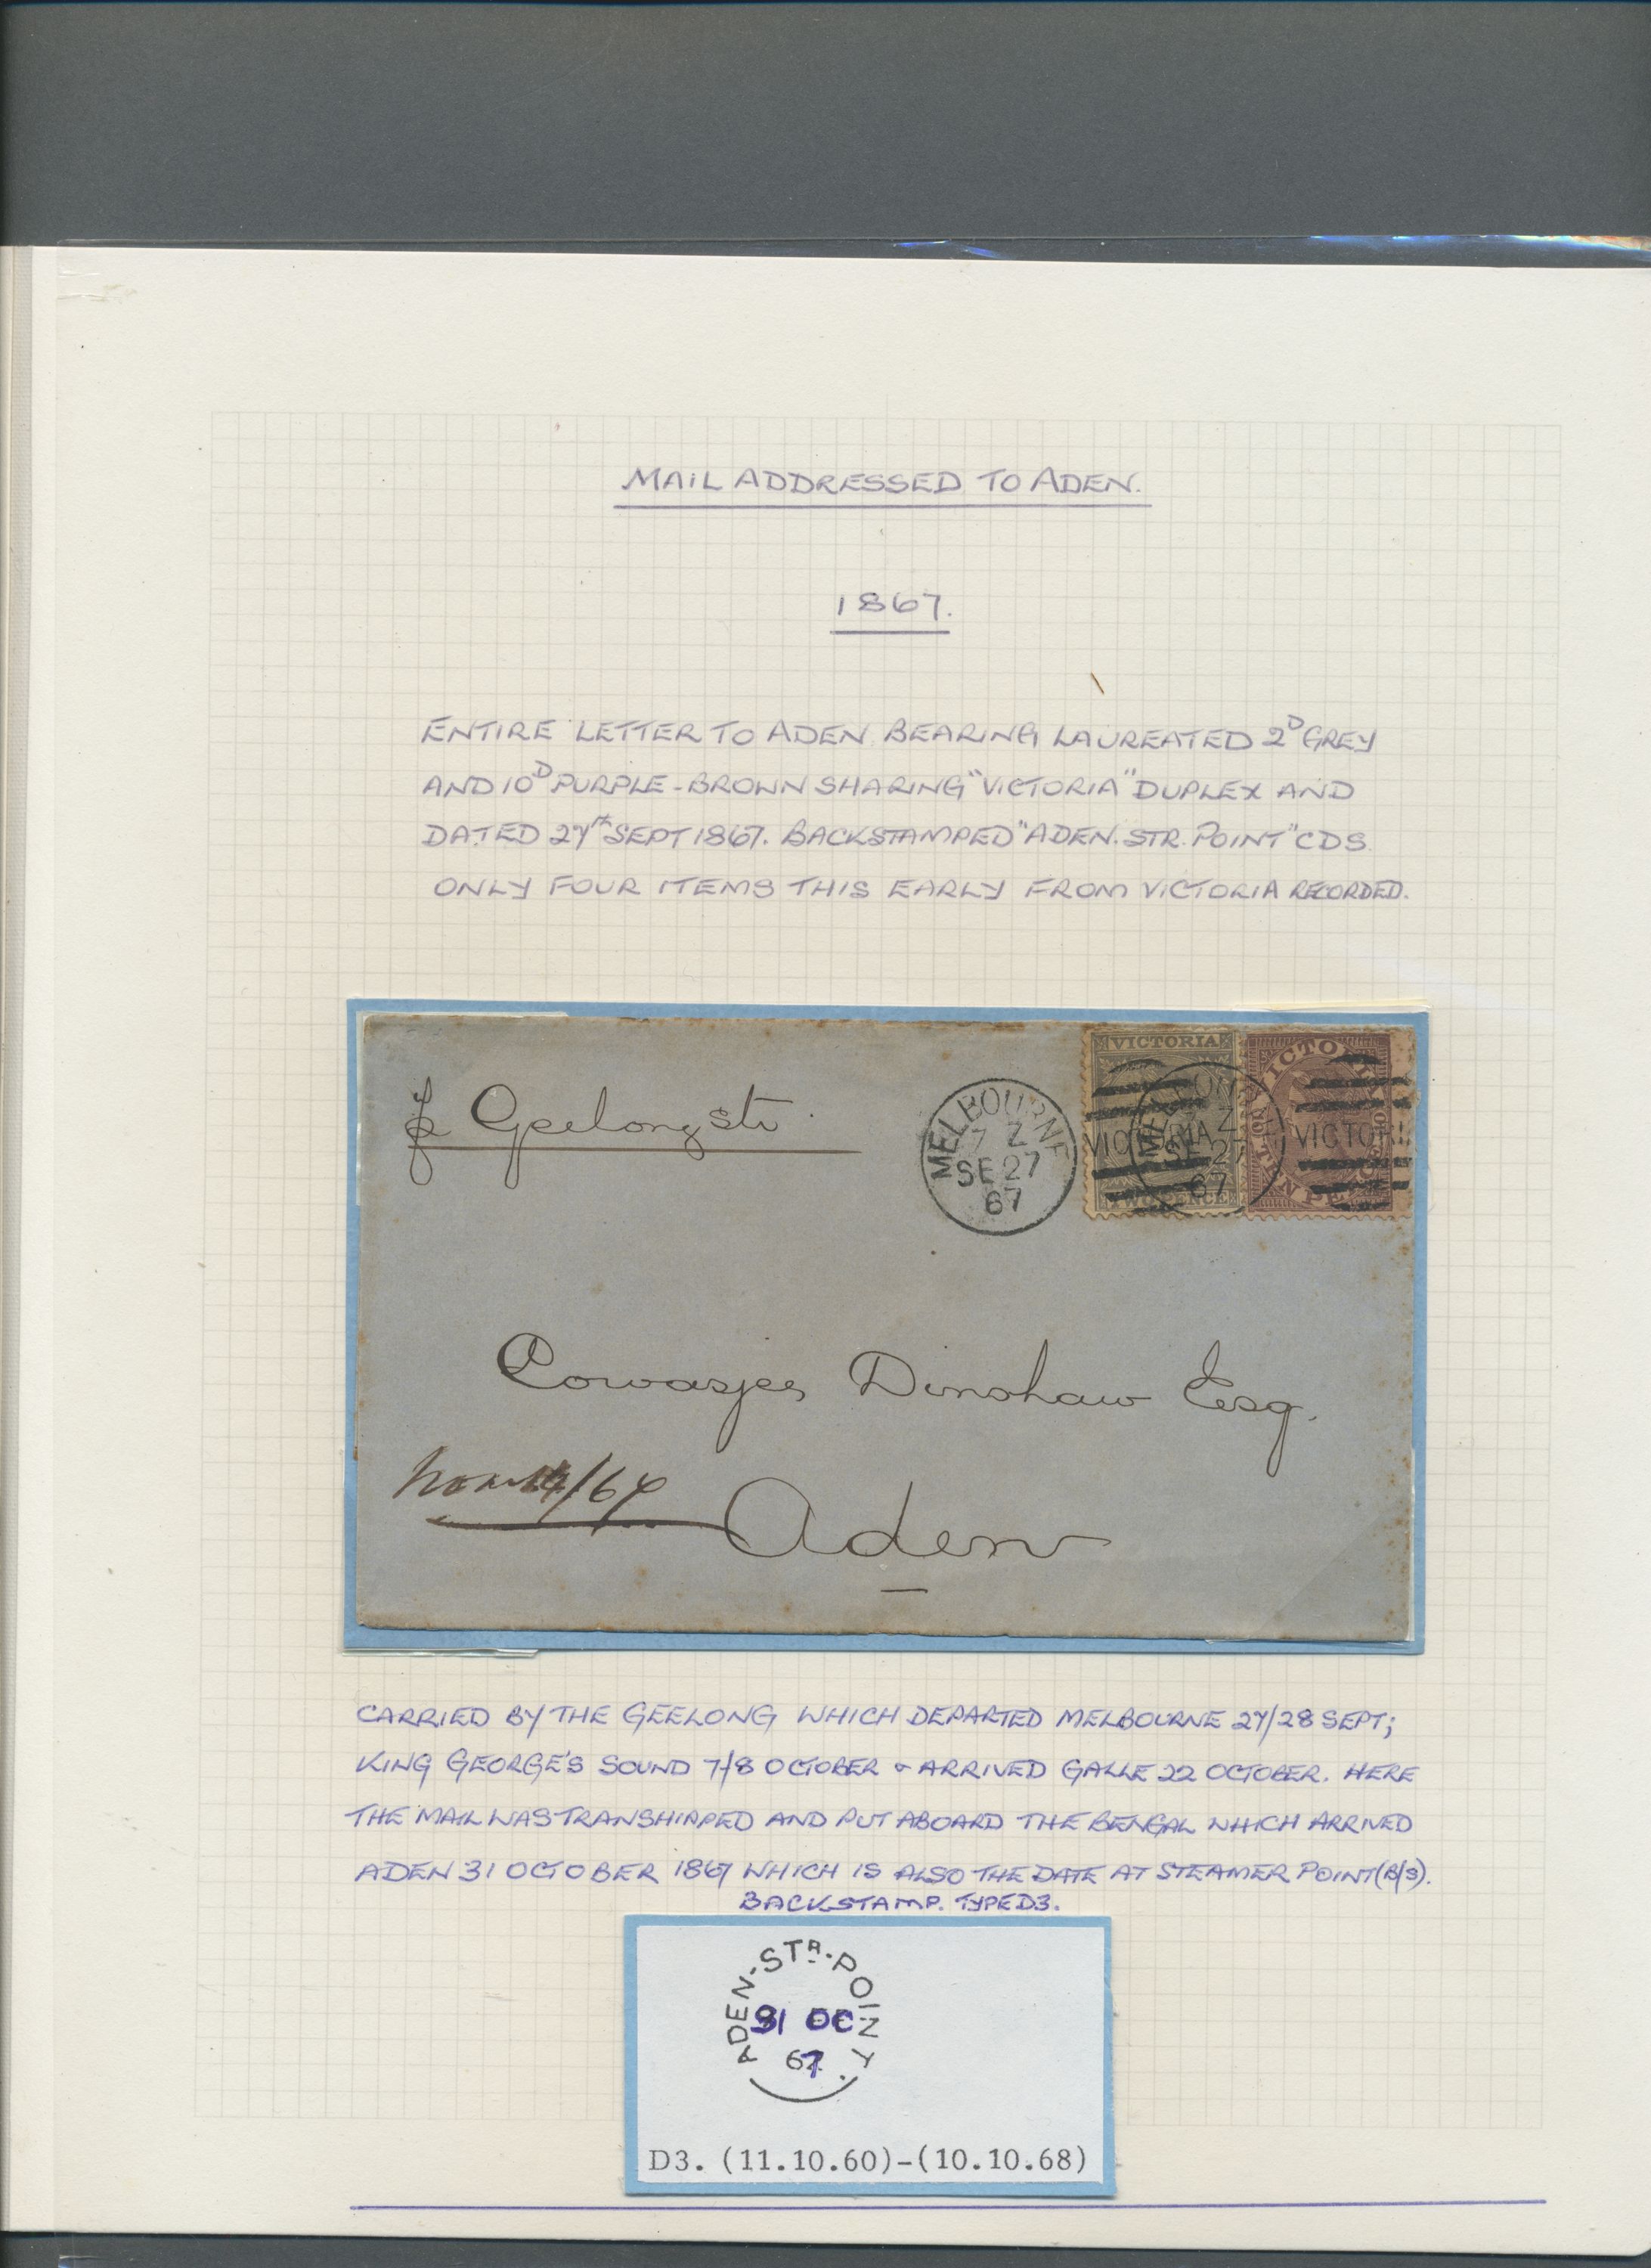 MAIL ADDRESSED TO ADEN.
1867.
ENTIRE LETTER TO ADEN BEARING LAUREATED 2D GREY
AND 10D PURPLE-BROWN SHARING "VICTORIA" DUPLEX AND
DATED 27th SEPT 1867. BACKSTAMPED "ADEN. STR. POINT" CDS.
ONLY FOUR ITEMS THIS EARLY FROM VICTORIA RECORDED.
p Geelong str
MELBOURNE
7 Z
SE 27
67
VICTORIA
TWO PENCE
VICTORIA
7 Z
SE 27
67
VICTO
TEN PENCE
VICTORI
Cowasjee Dinshaw Esq.
Aden
CARRIED BY THE GEELONG WHICH DEPARTED MELBOURNE 27/28 SEPT;
KING GEORGE'S SOUND 7/8 OCTOBER & ARRIVED GALLE 22 OCTOBER. HERE
THE MAIL WAS TRANSHIPPED AND PUT ABOARD THE BENGAL WHICH ARRIVED
ADEN 31 OCTOBER 1867 WHICH IS ALSO THE DATE AT STEAMER POINT (B/S).
BACKSTAMP. TYPE D3.
ADEN-STR.-POINT.
31 OC
67
D3. (11.10.60)-(10.10.68)